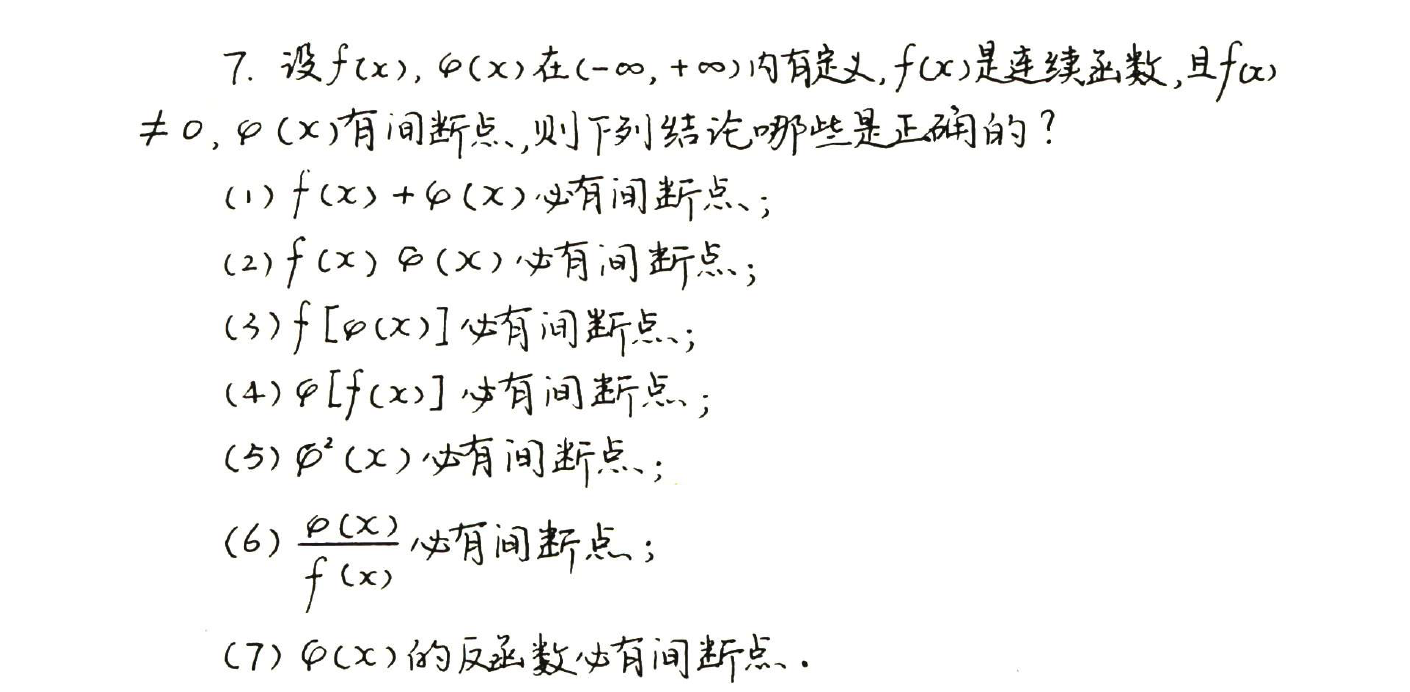 7. 设f(x), φ(x)在(-∞, +∞)内有定义, f(x)是连续函数, 且f(x)
≠0, φ(x)有间断点, 则下列结论哪些是正确的?
(1) f(x)+φ(x)必有间断点;
(2) f(x)φ(x)必有间断点;
(3) f[φ(x)]必有间断点;
(4) φ[f(x)]必有间断点;
(5) φ²(x)必有间断点;
(6) φ(x)/f(x) 必有间断点;
(7) φ(x)的反函数必有间断点.